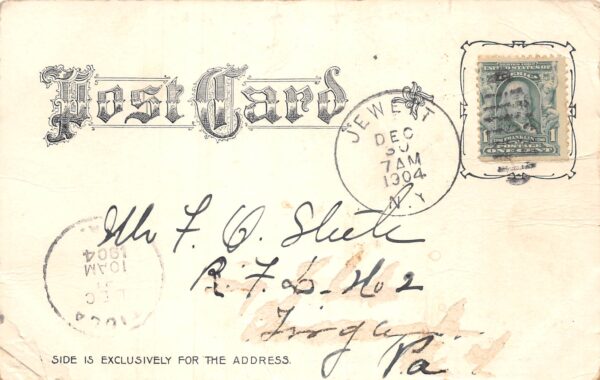 Post Card
UNITED STATES OF
AMERICA
FRANKLIN
1 POSTAGE 1
ONE CENT
JEWETT
DEC
30
7 AM
1904
N.Y.
Mr F. O.
R. F. D. No 2
Tioga
Pa
DEC
31
10 AM
1904
SIDE IS EXCLUSIVELY FOR THE ADDRESS.